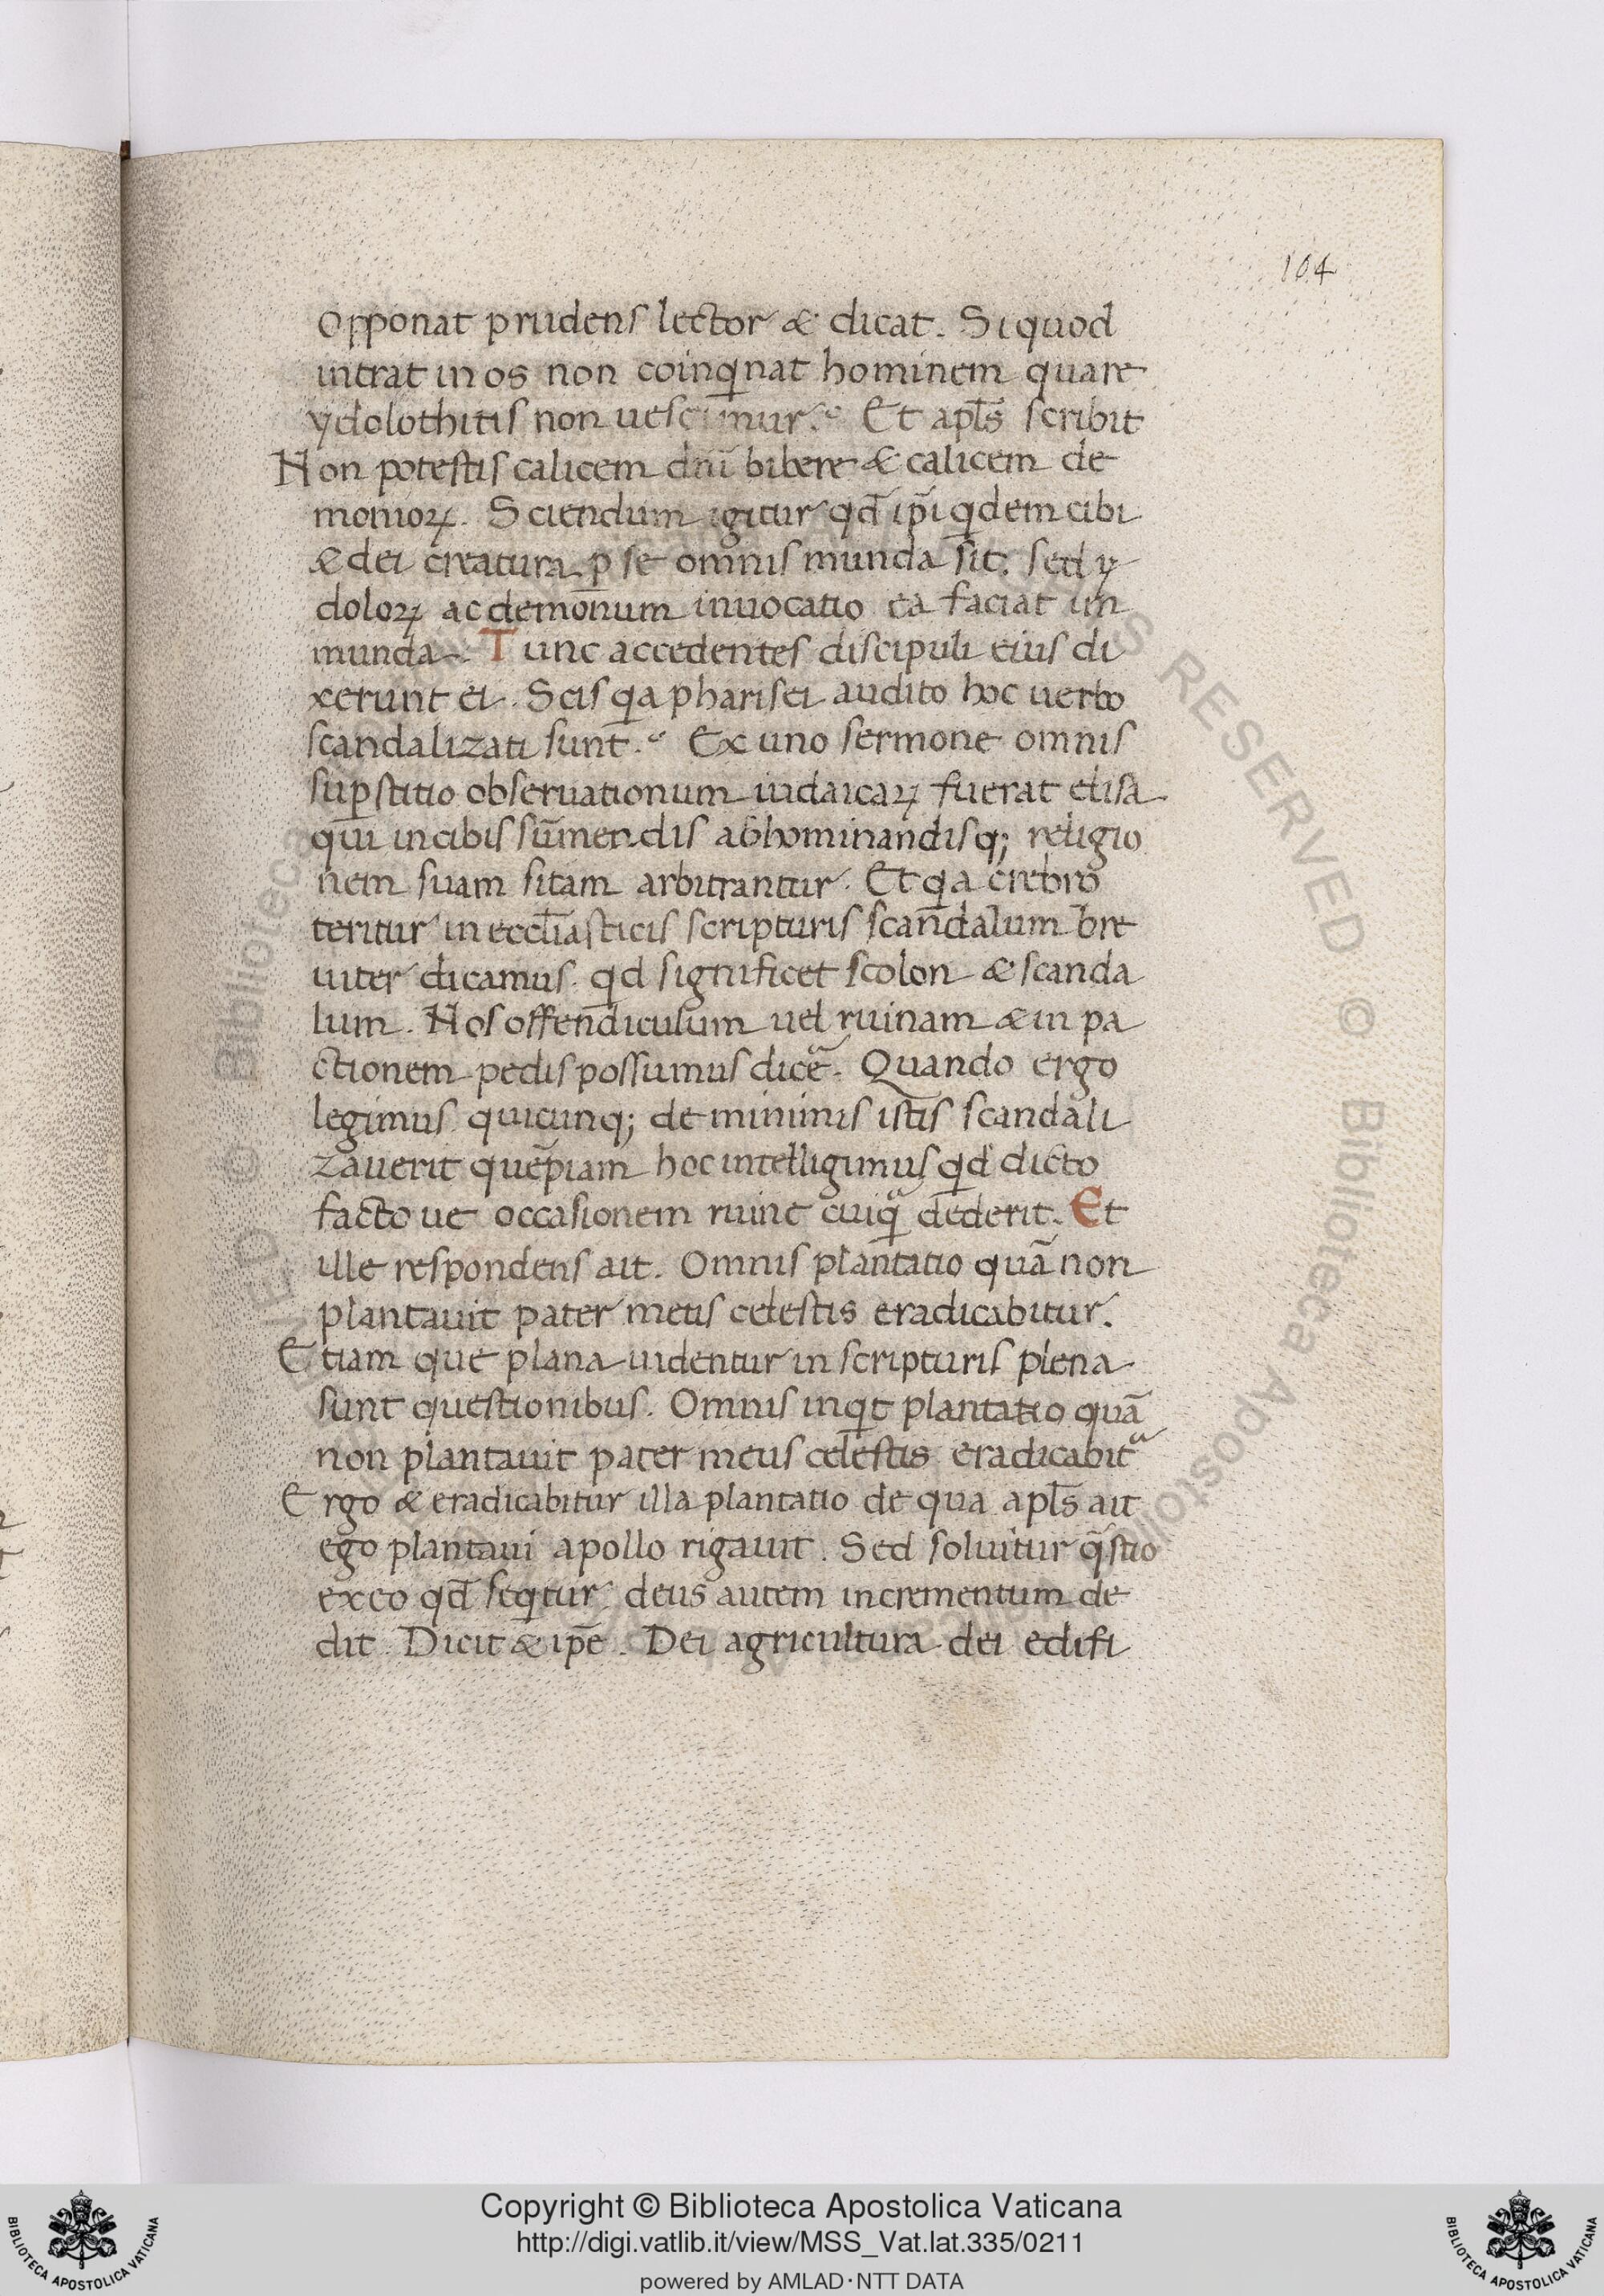 104
Opponat prudens lector & dicat. Si quod
intrat in os non coinqͥnat hominem quare
ydolothitis non uescimur. Et apl̄s scribit
Non potestis calicem dn̄i bibere & calicem de
monioꝝ. Sciendum igitur qd̄ ip̄i qͥdem cibi
& dei creatura ꝑ se omnis munda sit. sed y
doloꝝ ac demonum inuocatio ea faciat im
munda. Tunc accedentes discipuli eius di
xerunt ei. Scis qͥa pharisei audito hoc uerbo
scandalizati sunt. Ex uno sermone omnis
suꝑstitio obseruationum iudaicaꝝ fuerat elisa
qui in cibis sūmendis abhominandisq; religio
nem suam sitam arbitrantur. Et qͥa crebro
teritur in eccl̄iasticis scripturis scandalum bre
uiter dicamus. qͥd significet scolon & scanda
lum. Nos offendiculum uel ruinam & in pa
ctionem pedis possumus dicē. Quando ergo
legimus quicunq; de minimis istis scandali
zauerit quēpiam hoc intelligimus qͥd dicto
facto ue occasionem ruine cuiqͣ dederit. Et
ille respondens ait. Omnis plantatio quā non
plantauit pater meus celestis eradicabitur.
Etiam que plana uidentur in scripturis plena
sunt questionibus. Omnis inqͥt plantatio quā
non plantauit pater meus celestis eradicabit᷑
Ergo & eradicabitur illa plantatio de qua apl̄s ait
ego plantaui apollo rigauit. Sed soluitur q̄stio
ex eo qd̄ seqͥtur. deus autem incrementum de
dit. Dicit & ip̄e. Dei agricultura dei edifi
RESERVED © Biblioteca Apostolica
Copyright © Biblioteca Apostolica Vaticana
http://digi.vatlib.it/view/MSS_Vat.lat.335/0211
powered by AMLAD·NTT DATA
BIBLIOTECA APOSTOLICA VATICANA
BIBLIOTECA APOSTOLICA VATICANA